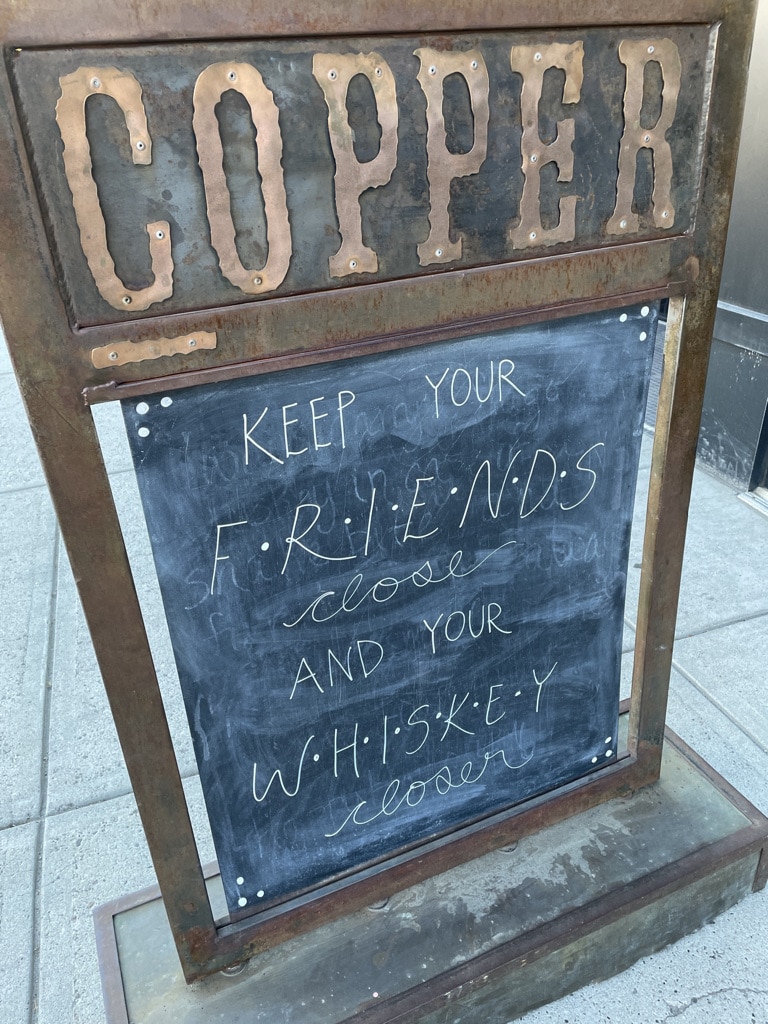 COPPER
KEEP YOUR
F·R·I·E·N·D·S
close
AND YOUR
W·H·I·S·K·E·Y
closer